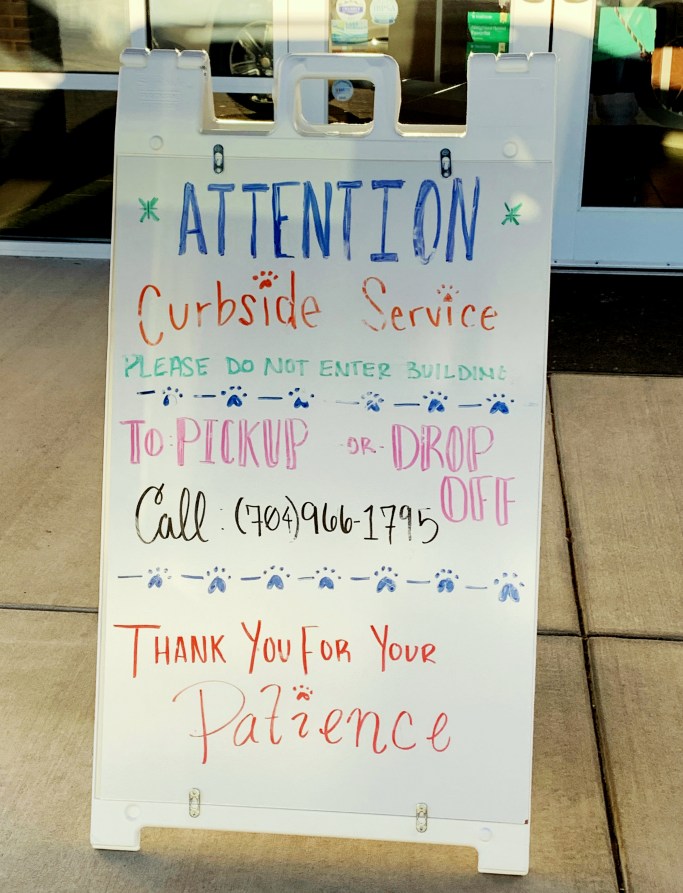 * ATTENTION *
Curbside Service
PLEASE DO NOT ENTER BUILDING
TO: PICKUP -OR- DROP
OFF
Call: (704)966-1795
THANK YOU FOR YOUR
Patience